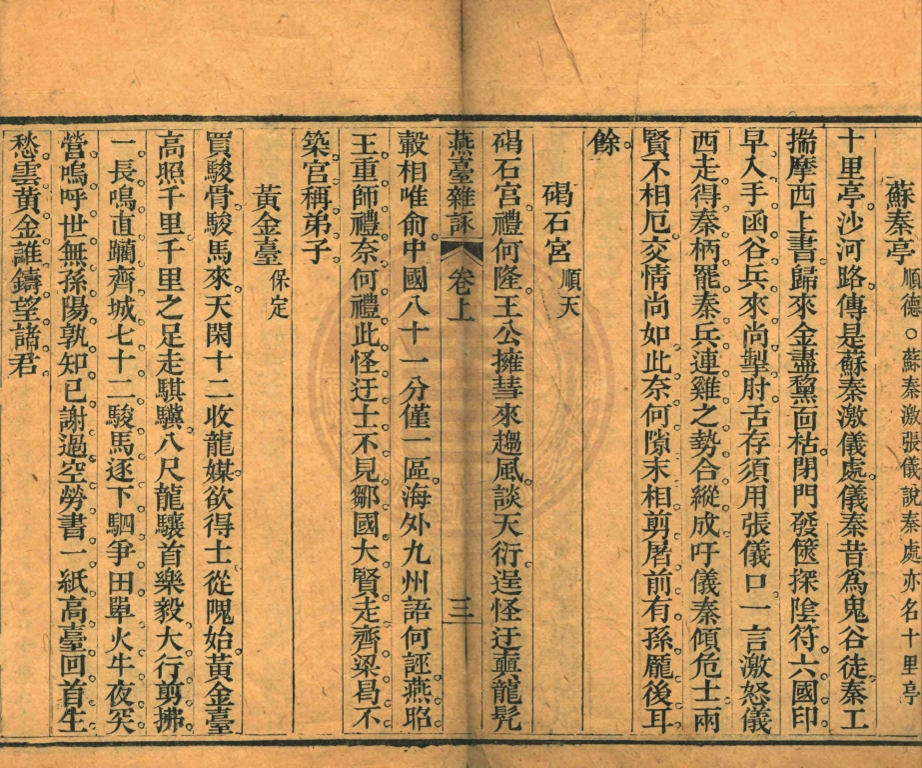 蘇秦亭順德○蘇秦激張儀說秦處亦名十里亭
十里亭沙河路傳是蘇秦激儀處儀秦昔為鬼谷徒秦工
揣摩西上書歸來金盡黧面枯閉門發篋探陰符六國印
早入手函谷兵來尚掣肘舌存須用張儀口一言激怒儀
西走得秦柄罷秦兵連雞之勢合縱成吁儀秦傾危士兩
賢不相厄交情尚如此奈何隙末相剪屠前有孫龐後耳
餘
碣石宮順天
碣石宮禮何隆王公擁彗來趨風談天衍逞怪迂龜龍髡
燕臺雜詠 卷上 三
轂相唯俞中國八十一分僅一區海外九州語何誣燕昭
王重師禮奈何禮此怪迂士不見鄒國大賢走齊梁曷不
築宮稱弟子
黃金臺保定
買駿骨駿馬來天閑十二收龍媒欲得士從隗始黃金臺
高照千里千里之足走騏驥八尺龍驤首樂毅大行剪拂
一長鳴直躪齊城七十二駿馬逐下駟爭田單火牛夜突
營嗚呼世無孫陽孰知已謝過空勞書一紙高臺回首生
愁雲黃金誰鑄望諸君